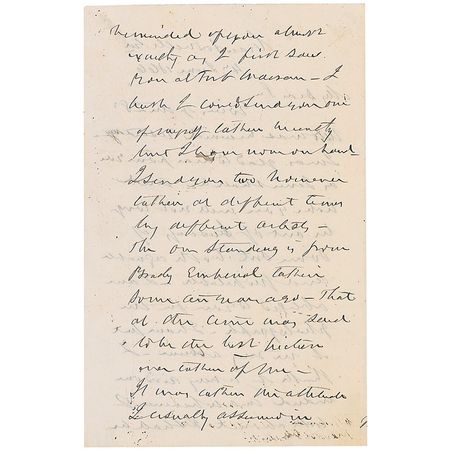 reminded upon almost
exactly as I first saw
you at Fort Macon – I
wish I could send you one
of myself taken recently
but I have none on hand –
I send you two however
taken at different times
by different artists –
the one standing is from
Brady Emperial taken
some years ago – That
at the time was said
to be the best picture
ever taken of me –
It was taken the attitude
I usually assumed in